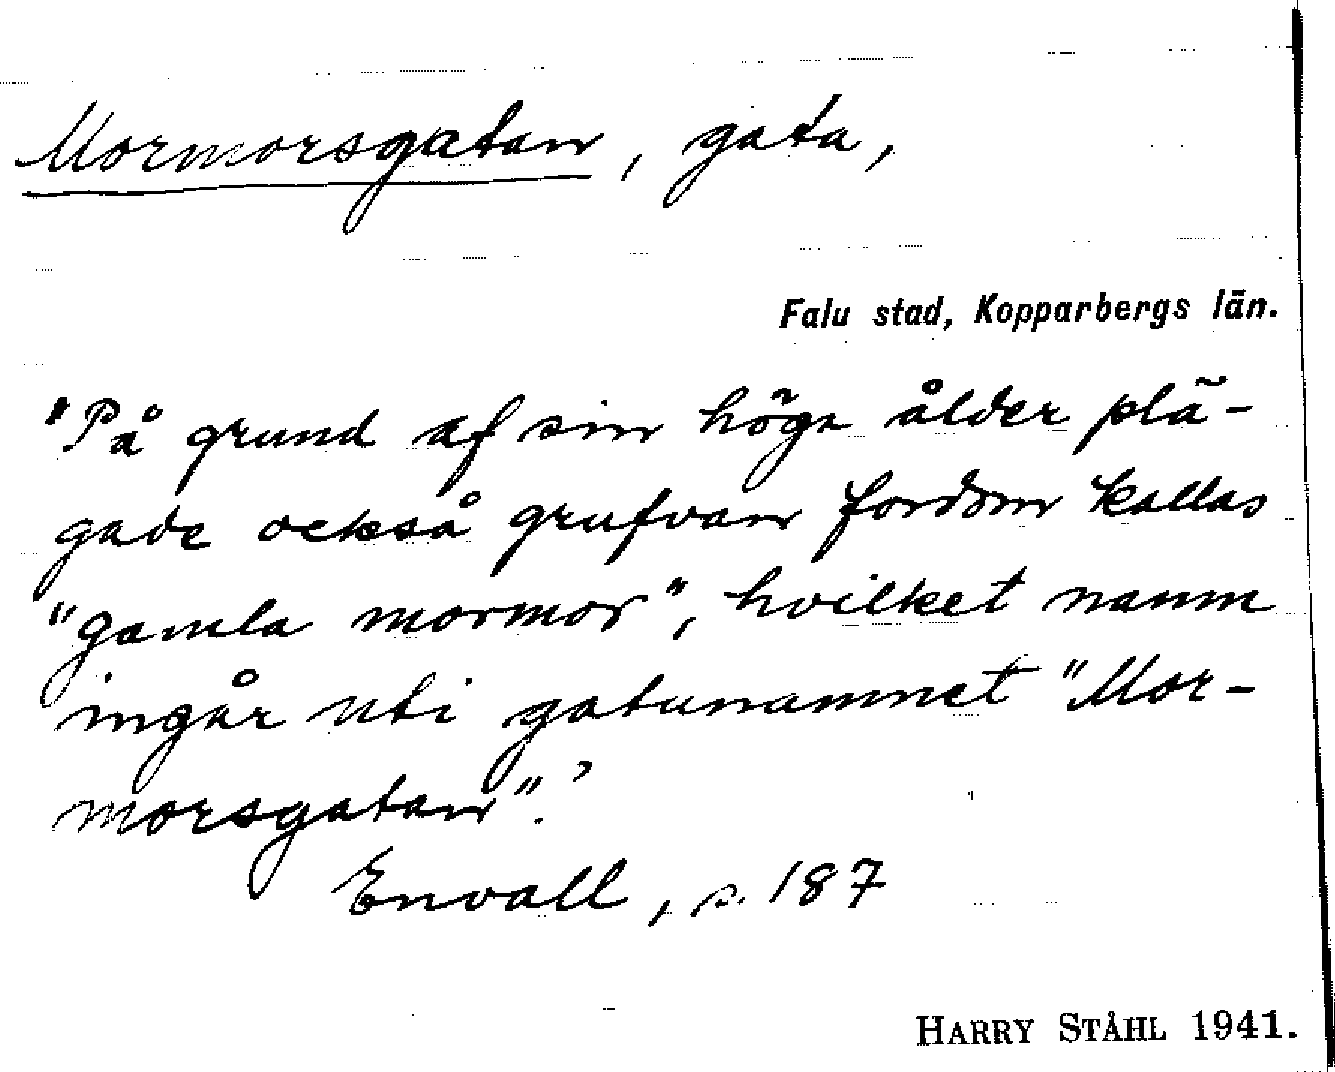 Mormorsgatan, gata,
Falu stad, Kopparbergs län.
"På grund af sin höga ålder plä-
gade också grufvan fordom kallas
"gamla mormor", hvilket namn
ingår uti gatunamnet "Mor-
morsgatan".'
Envall, s. 187
HARRY STÅHL 1941.